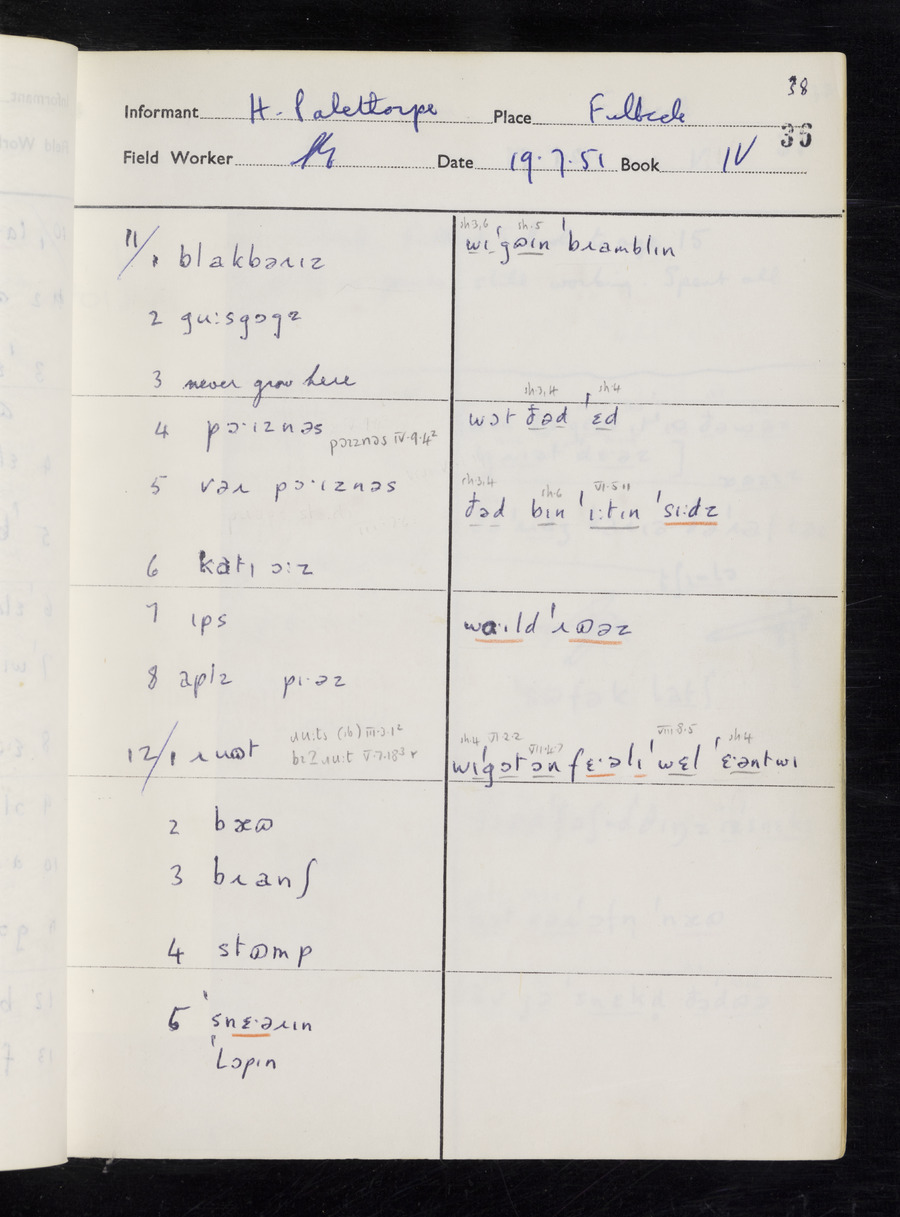 38
Informant H. Palethorpe Place Fulbeck
36
Field Worker Date 19.7.51 Book IV
11/1 blakbəɹɪz
sh.3,6 sh.5
wɪˈgɷɪn ˈbɹamblɪn
2 gu:sgɔgz
3 never grow here
sh.3,4 sh.4
4 pɔ·ɪznəs
wɔt ðəd ˈɛd
pɔɪznəs IV.9.4²
5 vəɹ pɔ·ɪznəs
sh.3,4 sh.6 VI.5.11
ðəd bɪn ˈi:tɪn ˈsi:dz
6 katɪ ɔ:z
7 ɪps
wa·ɪld ˈɹɷəz
8 aplz pɪ·əz
12/1 ɹuət
ɹu:ts (ib) III.3.1²
bɪʔ ɹu:t V.7.18³
sh.4 VI.2.2 VII.4.7 VIII.8.5 sh.4
wɪˈgɔt ən fɛ·əlɪ ˈwɛl ˈɛ·əntwɪ
2 bɷ
3 bɹanʃ
4 stɷmp
5 ˈsnɛ·əɹɪn
ˈlɔpɪn